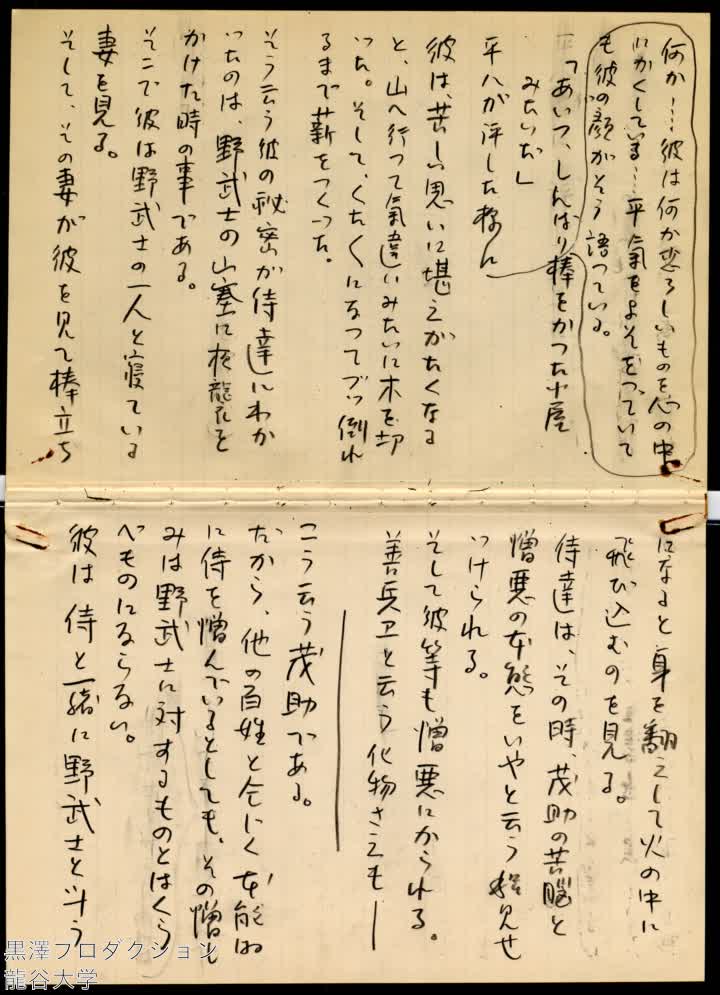 何か……彼は何か恐ろしいものを心の中
にかくしている…平気をよそをっていて
も彼の顔がそう語っている。
「あいつ、しんばり棒をかつた小屋
みたいだ」
平八が評した様に
彼は、苦しい思いに堪えがたくなる
と、山へ行って気違いみたいに木を切
った。そして、くたくたになってブッ倒れ
るまで薪をつくった。
そう云う彼の秘密が侍達にわか
ったのは、野武士の山塞に
かけた時の事である。
そこで彼は野武士の一人と寝ている
妻を見る。
そして、その妻が彼を見て棒立ち
になると身を翻えして火の中に
飛び込むのを見る。
侍達は、その時、茂助の苦脳と
憎悪の本態をいやと云う程見せ
つけられる。
そして彼等も憎悪にかられる。
善兵卫と云う化物さえも―
こう云う茂助である。
だから、他の百姓と同じく本能的
に侍を憎んでいるとしても、その憎し
みは野武士に対するものとはくら
べものにならない。
彼は侍と一緒に野武士と斗う
黒澤プロダクション
龍谷大学